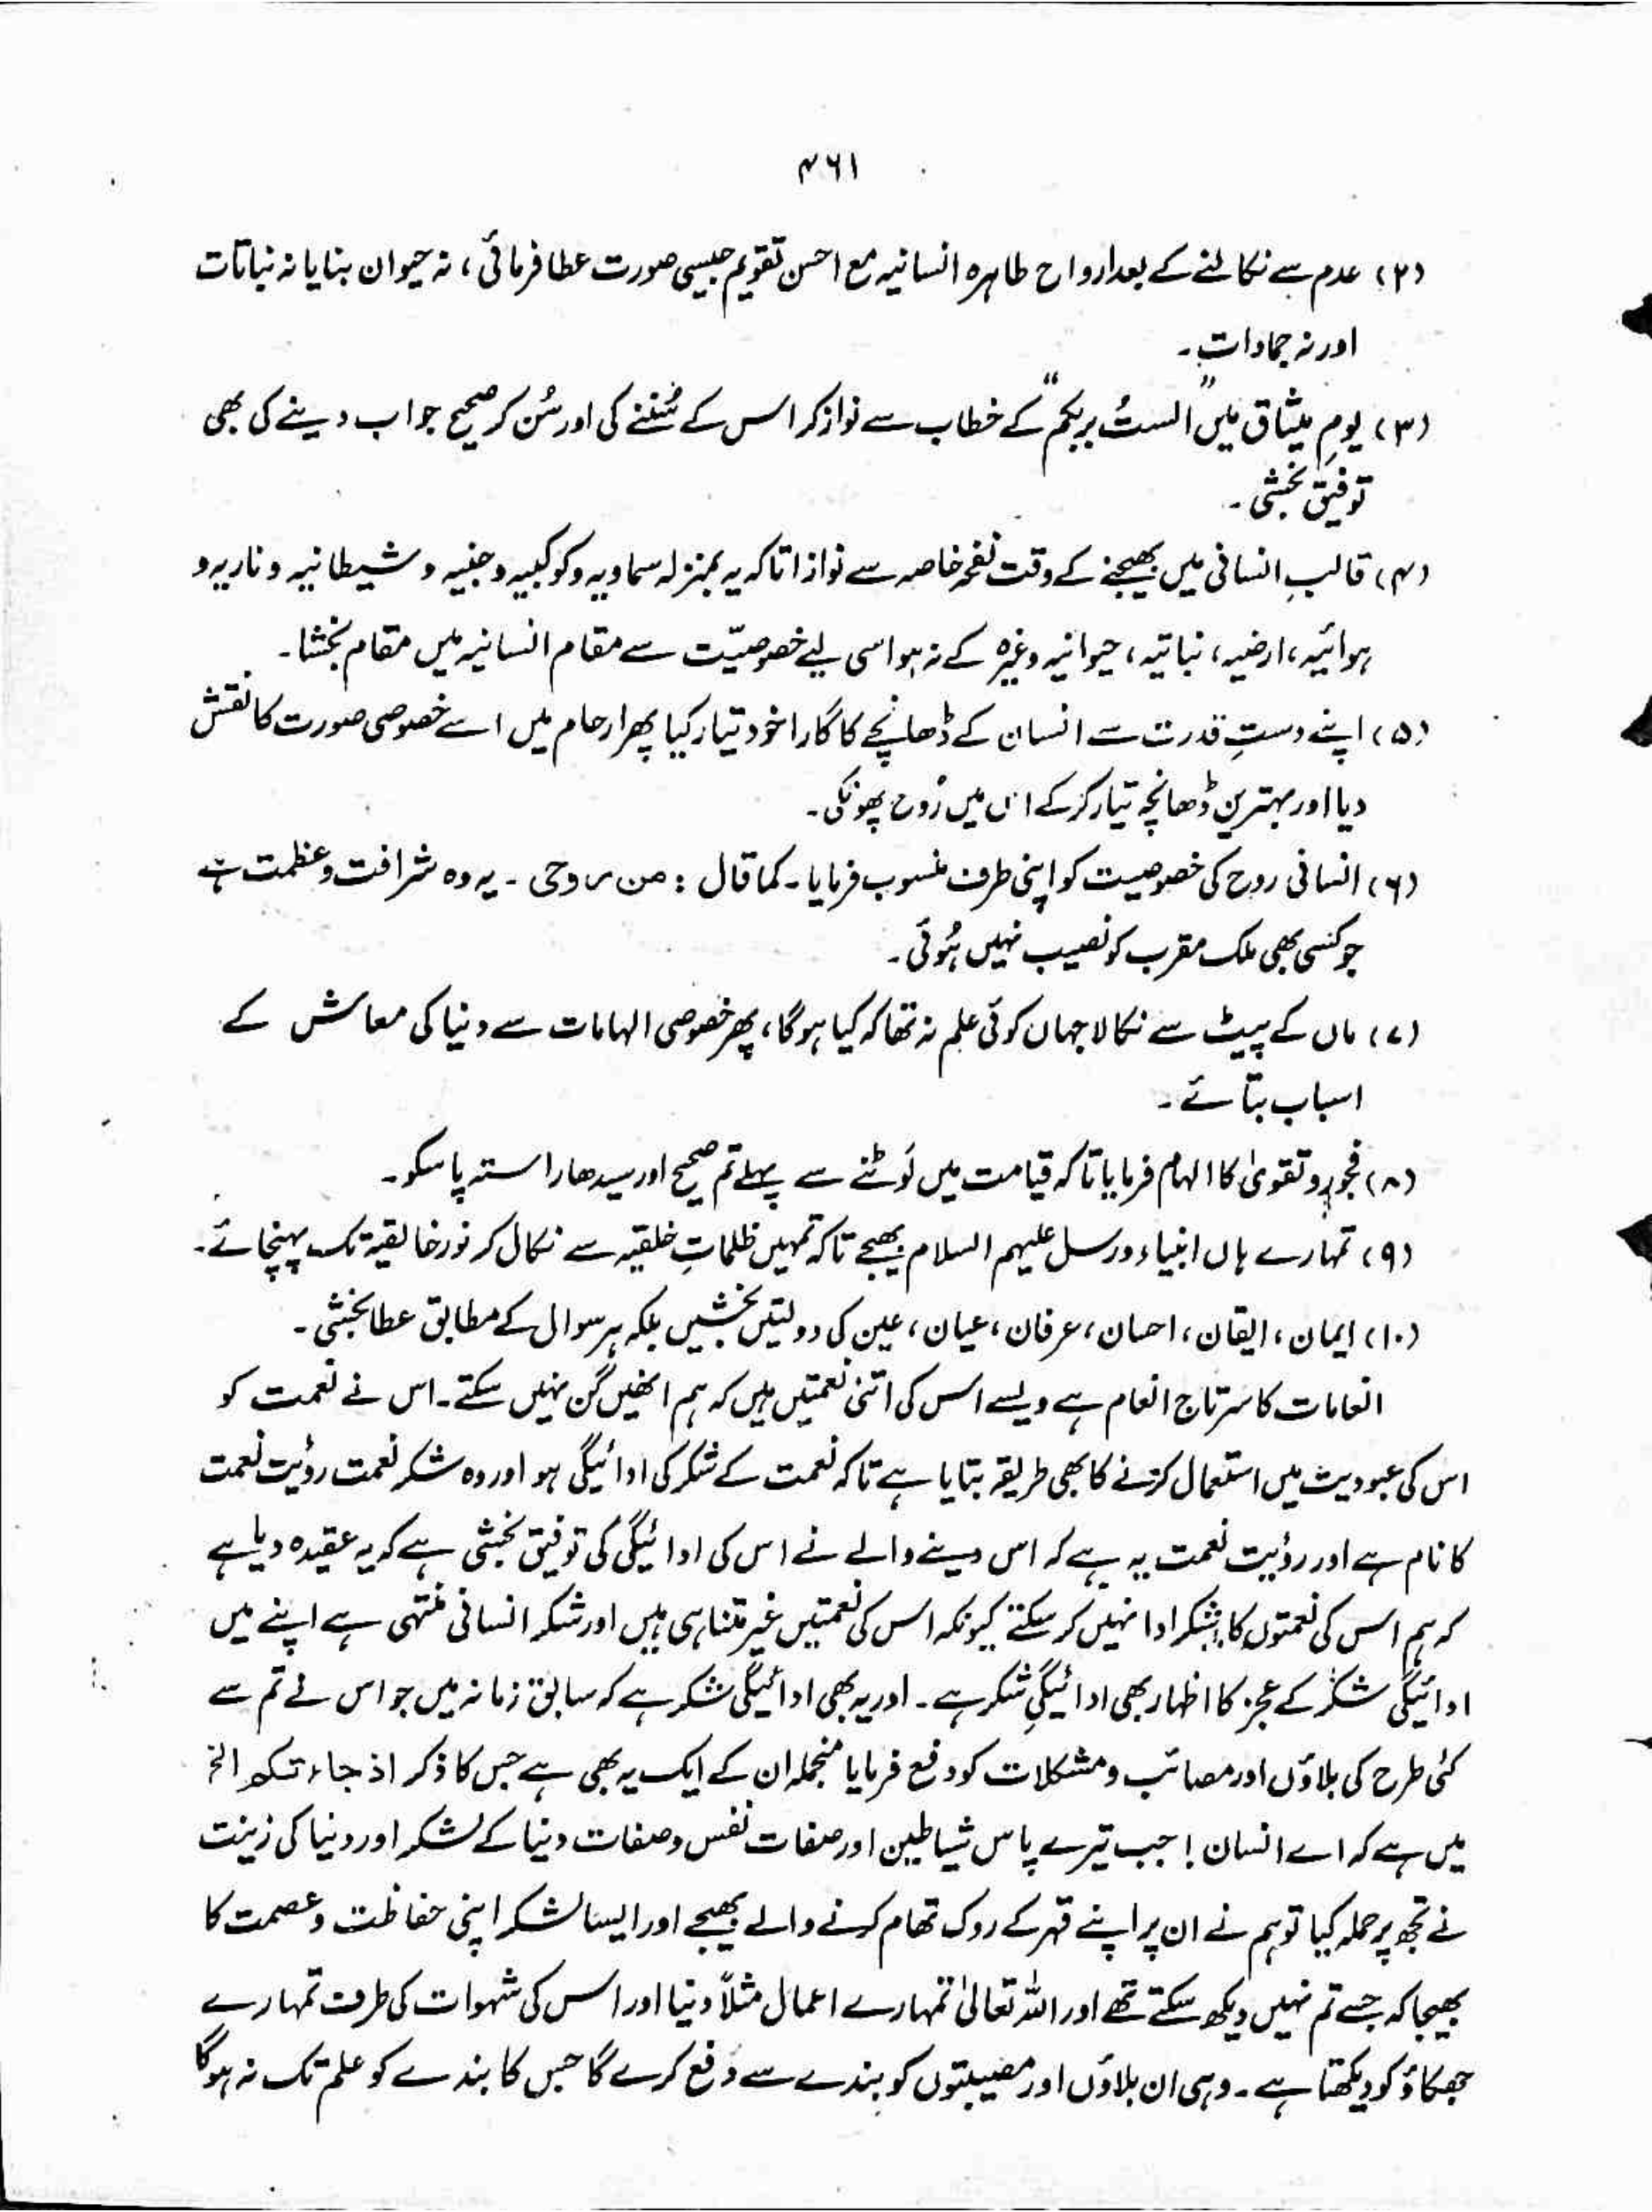 ۴۶۱
(۲) عدم سے نکالنے کے بعد ارواح طاہرہ انسانیہ مع احسن تقویم جیسی صورت عطا فرمائی، نہ حیوان بنایا نہ نباتات
اور نہ جمادات۔
(۳) یومِ میثاق میں "الستُ بربکم" کے خطاب سے نواز کر اس کے سُننے کی اور سُن کر صحیح جواب دینے کی بھی
توفیق بخشی۔
(۴) قالبِ انسانی میں بھیجنے کے وقت نفخہ خاصہ سے نوازا تاکہ یہ بمنزلہ سماویہ و کوکبیہ و جنیہ و شیطانیہ و ناریہ و
ہوائیہ، ارضیہ، نباتیہ، حیوانیہ وغیرہ کے نہ ہو اسی لیے خصوصیّت سے مقام انسانیہ میں مقام بخشا۔
(۵) اپنے دستِ قدرت سے انسان کے ڈھانچے کا گارا خود تیار کیا پھر ارحام میں اسے خصوصی صورت کا نقش
دیا اور بہترین ڈھانچہ تیار کر کے اس میں رُوح پھونکی۔
(۶) انسانی روح کی خصوصیت کو اپنی طرف منسوب فرمایا۔ کما قال : من روحی ۔ یہ وہ شرافت و عظمت ہے
جو کسی بھی ملک مقرب کو نصیب نہیں ہُوئی۔
(۷) ماں کے پیٹ سے نکالا جہاں کوئی علم نہ تھا کہ کیا ہوگا، پھر خصوصی الہامات سے دنیا کی معاش کے
اسباب بتائے۔
(۸) فجور و تقویٰ کا الہام فرمایا تاکہ قیامت میں لَوٹنے سے پہلے تم صحیح اور سیدھا راستہ پا سکو۔
(۹) تمہارے ہاں انبیاء و رسل علیہم السلام بھیجے تاکہ تمہیں ظلماتِ خلقیہ سے نکال کر نور خالقیۃ تک پہنچائے۔
(۱۰) ایمان، ایقان، احسان، عرفان، عیان، عین کی دولتیں بخشیں بلکہ ہر سوال کے مطابق عطا بخشی۔
انعامات کا سَرتاج انعام ہے ویسے اس کی اتنی نعمتیں ہیں کہ ہم انھیں گن نہیں سکتے۔ اس نے نعمت کو
اس کی عبودیت میں استعمال کرنے کا بھی طریقہ بتایا ہے تاکہ نعمت کے شکر کی ادائیگی ہو اور وہ شکر نعمت رؤیت نعمت
کا نام ہے اور رؤیت نعمت یہ ہے کہ اس دینے والے نے اس کی ادائیگی کی توفیق بخشی ہے کہ یہ عقیدہ دیا ہے
کہ ہم اس کی نعمتوں کا شکر ادا نہیں کر سکتے کیونکہ اس کی نعمتیں غیر متناہی ہیں اور شکر انسانی منتہی ہے اپنے میں
ادائیگی شکر کے عجز کا اظہار بھی ادائیگیِ شکر ہے۔ اور یہ بھی ادائیگی شکر ہے کہ سابق زمانہ میں جو اس نے تم سے
کئی طرح کی بلاؤں اور مصائب و مشکلات کو دفع فرمایا منجملہ ان کے ایک یہ بھی ہے جس کا ذکر اذ جاءتکم الخ
میں ہے کہ اے انسان ! جب تیرے پاس شیاطین اور صفات نفس و صفات دنیا کے لشکر اور دنیا کی زینت
نے تجھ پر حملہ کیا تو ہم نے ان پر اپنے قہر کے روک تھام کرنے والے بھیجے اور ایسا لشکر اپنی حفاظت و عصمت کا
بھیجا کہ جسے تم نہیں دیکھ سکتے تھے اور اللہ تعالیٰ تمہارے اعمال مثلاً دنیا اور اس کی شہوات کی طرف تمہارے
جھکاؤ کو دیکھتا ہے۔ وہی ان بلاؤں اور مصیبتوں کو بندے سے دفع کرے گا جس کا بندے کو علم تک نہ ہوگا